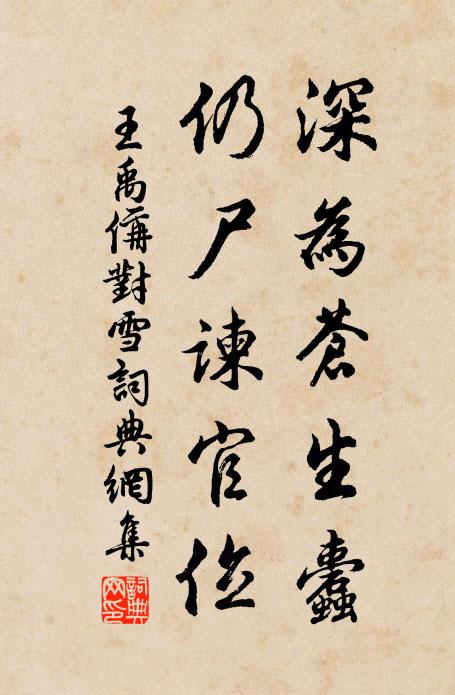 深為蒼生蠹
仍尸諫官位
王禹偁對雪詞典網集
詞典
網印